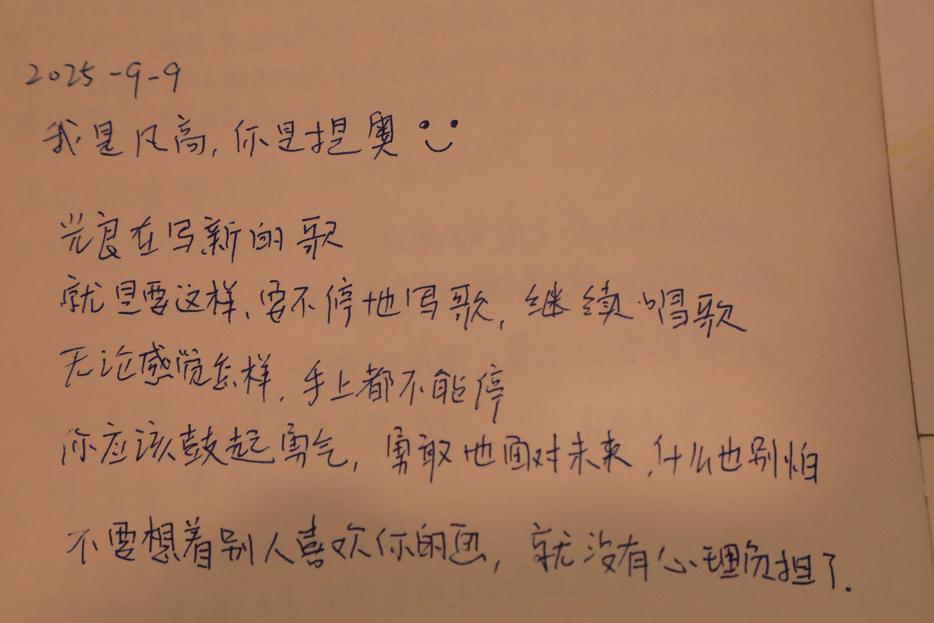 2025-9-9
我是凡高,你是提奥
光良在写新的歌
就是要这样,要不停地写歌,继续唱歌
无论感觉怎样,手上都不能停
你应该鼓起勇气,勇敢地面对未来,什么也别怕
不要想着别人喜欢你的画,就没有心理负担了.